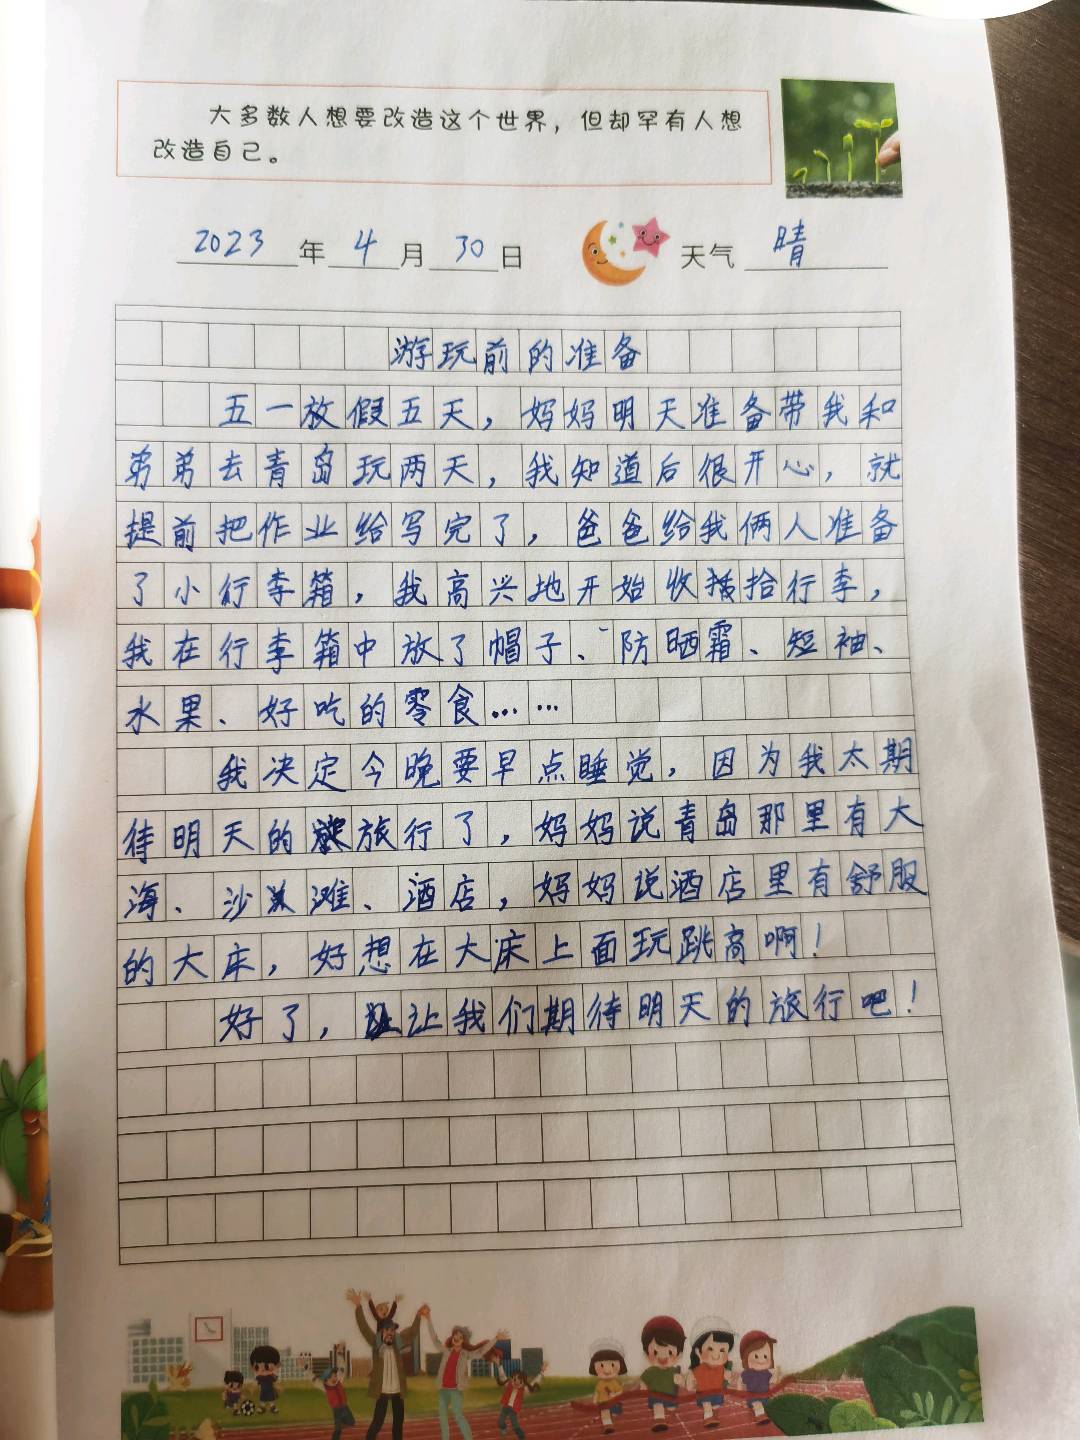 大多数人想要改造这个世界，但却罕有人想
改造自己。
2023年4月30日 天气 晴
游玩前的准备
五一放假五天，妈妈明天准备带我和
弟弟去青岛玩两天，我知道后很开心，就
提前把作业给写完了，爸爸给我俩人准备
了小行李箱，我高兴地开始收拾行李，
我在行李箱中放了帽子、防晒霜、短袖、
水果、好吃的零食……
我决定今晚要早点睡觉，因为我太期
待明天的旅行了，妈妈说青岛那里有大
海、沙滩、酒店，妈妈说酒店里有舒服
的大床，好想在大床上面玩跳高啊！
好了，让我们期待明天的旅行吧！